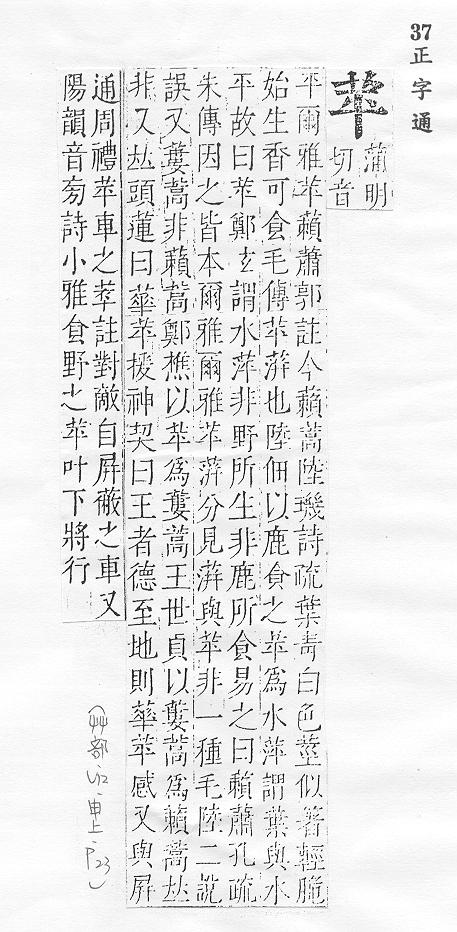 37 正字通
苹
蒲明
切音
平爾雅苹藾蕭郭註今藾蒿陸璣詩疏葉青白色莖似箸輕脆
始生香可食毛傳苹蓱也陸佃以鹿食之苹爲水萍謂葉與水
平故曰苹鄭玄謂水萍非野所生非鹿所食易之曰藾蕭孔疏
朱傳因之皆本爾雅爾雅苹蓱分見蓱與苹非一種毛陸二說
誤又蔞蒿非藾蒿鄭樵以苹爲蔞蒿王世貞以蔞蒿爲藾蒿𠀤
非又𠀤頭蓮曰蕐苹援神契曰王者德至地則蕐苹感又與屛
通周禮苹車之萃註對敵自屛蔽之車又
陽韻音旁詩小雅食野之苹叶下將行
(艸部 上 P23)